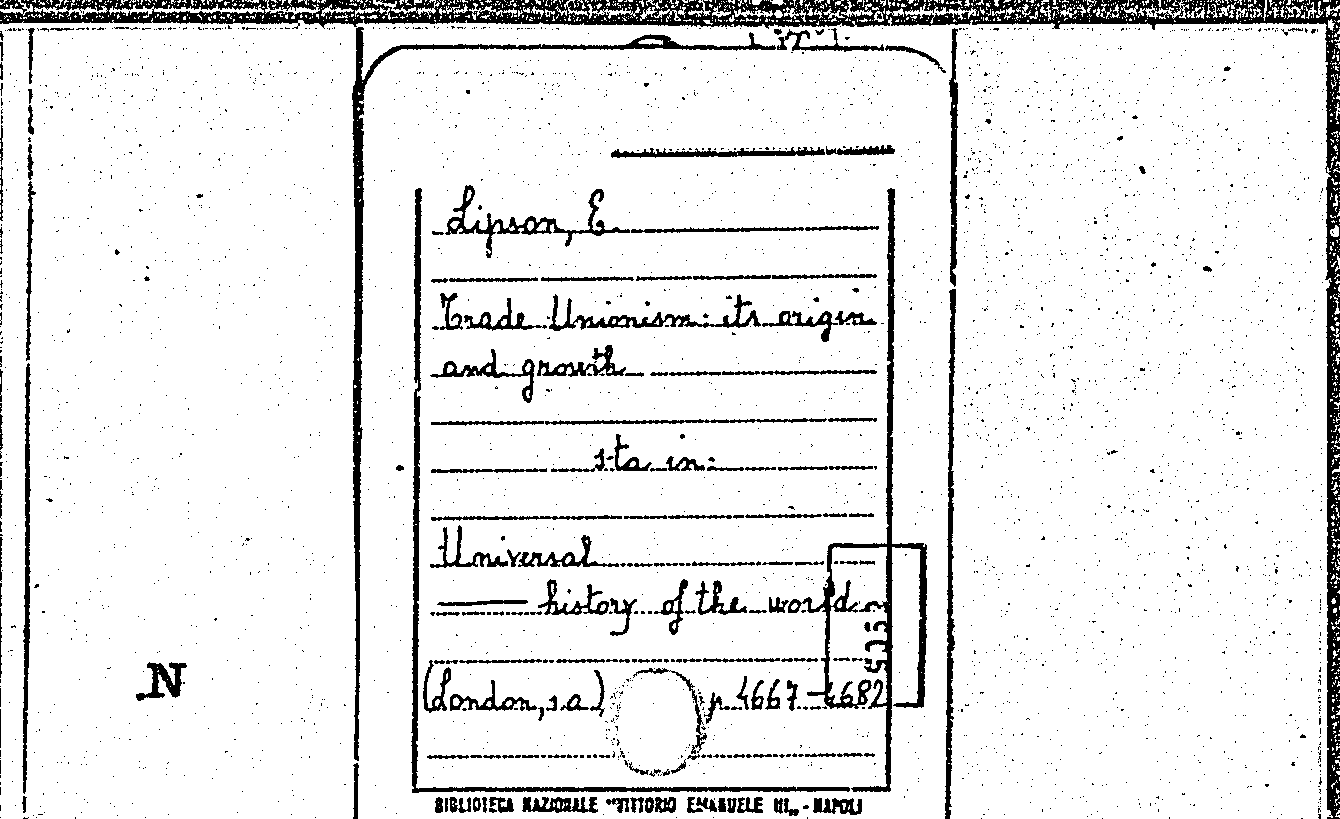 Lipson, E.
Trade Unionism: its origin
and growth
sta in:
Universal
—— history of the world
(London, s.a.) p. 4667-4682
.N
BIBLIOTECA NAZIONALE "VITTORIO EMANUELE III„ - NAPOLI